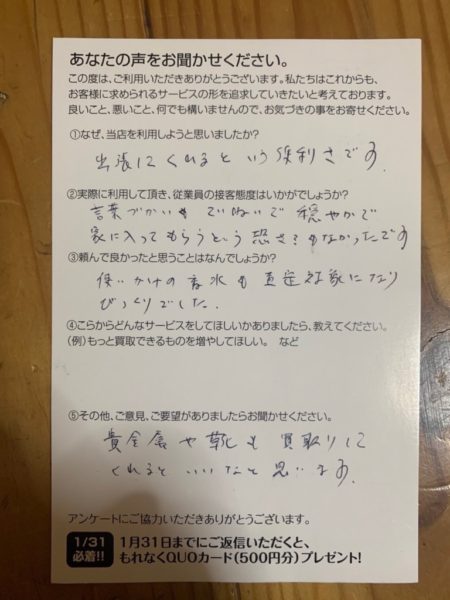 あなたの声をお聞かせください。
この度は、ご利用いただきありがとうございます。私たちはこれからも、
お客様に求められるサービスの形を追求していきたいと考えております。
良いこと、悪いこと、何でも構いませんので、お気づきの事をお寄せください。
①なぜ、当店を利用しようと思いましたか?
出張にくれるという便利さです。
②実際に利用して頂き、従業員の接客態度はいかがでしょうか?
言葉づかいもていねいで穏やかで
家に入ってもらうという恐さもなかったです
③頼んで良かったと思うことはなんでしょうか?
使いかけの香水も査定対象になり
びっくりでした。
④こらからどんなサービスをしてほしいかありましたら、教えてください。
(例)もっと買取できるものを増やしてほしい。 など
⑤その他、ご意見、ご要望がありましたらお聞かせください。
貴金属や靴も買取りに
くれるといいなと思います。
アンケートにご協力いただきありがとうございます。
1/31
必着!!
1月31日までにご返信いただくと、
もれなくQUOカード(500円分)プレゼント!